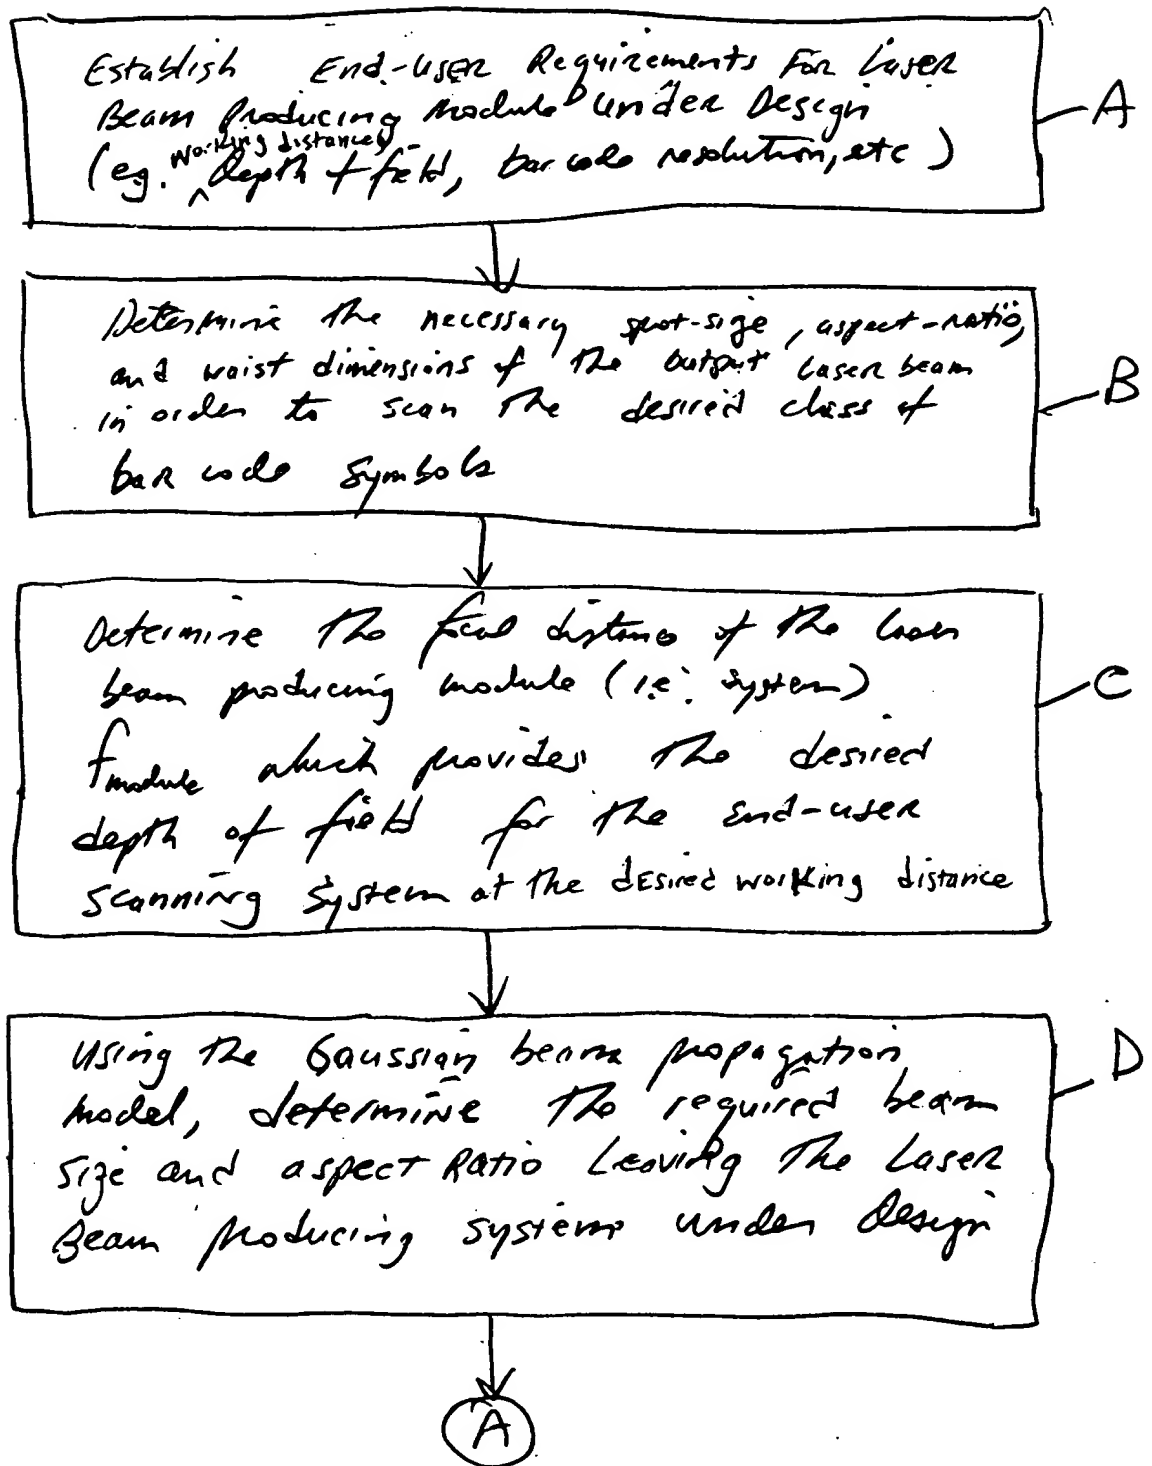 Establish End-User Requirements For Laser
Beam Producing Module Under Design
working distances,
(eg. ^ Depth of field, bar code resolution, etc)
A
Determine the necessary spot-size, aspect-ratio,
and waist dimensions of the output laser beam
in order to scan the desired class of
bar code symbols
B
Determine the focal distance of the laser
beam producing module (i.e. system)
fmodule which provides the desired
depth of field for the end-user
scanning system at the desired working distance
C
Using the Gaussian beam propagation
model, determine the required beam
size and aspect Ratio Leaving The Laser
Beam producing system under design
D
A